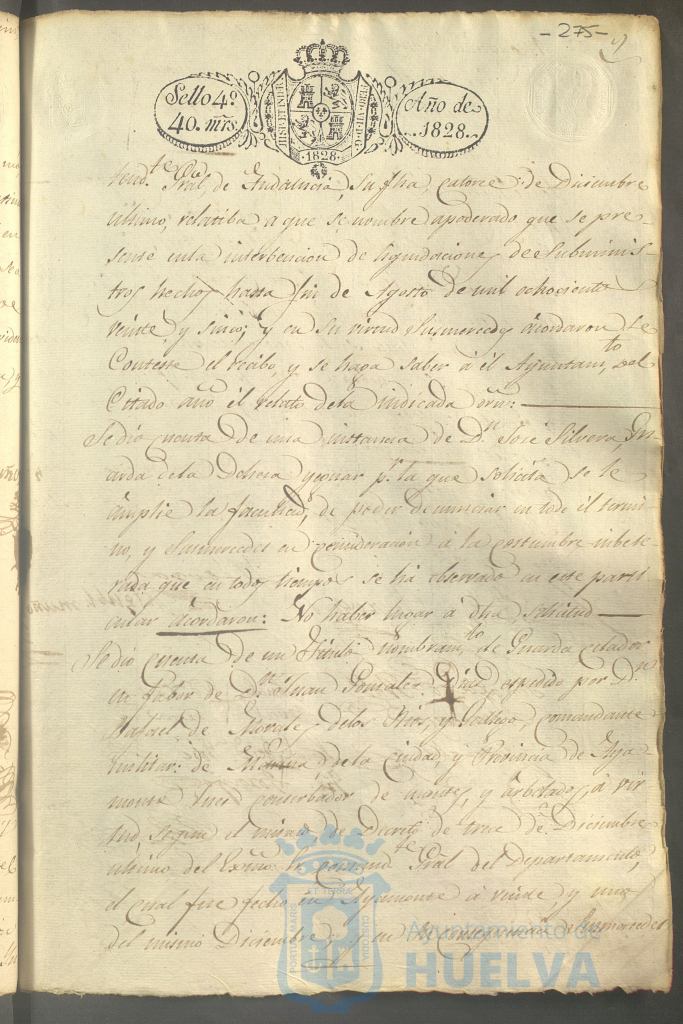 - 275 -
Sello 4º
40. mrs.
HISP. ET IND. R.
FERD. VII D. G.
1828
Año de
1828.
tend.te Gral, de Andalucia, su fha, catorce de Diciembre
último, relatiba a que se nombre apoderado que se pre-
sente en la interbencion de liquidaciones de Subminis-
tros hechos hasta fin de Agosto de mil ochocientos
veinte y sinco; y en su virtud Susmercedes acordaron se
Conteste el recibo, y se haga saber à el Ayuntam.to del
Citado año el relato de la indicada orn:
Se dio cuenta de una instancia de Dn José Silvera, Gu-
arda de la Dehesa y pr. la que solicita se le
ámplie la facultad, de poder denunciar en todo el termi-
no, y Susmercedes en concideracion à la costumbre inbete-
rada que en todos tiempos se há observado en este parti
cular acordaron: No haber lugar à dha solicitud
Se dio cuenta de un Titulo nombram.to de Guarda celador
en fabor de Dn Juan Gonzales Diaz, espedido por Dn
Rafael de Morales de los Rios, y comandante
militar de Marina, de la Ciudad, y Provincia de Aya-
monte Juez conserbador de montes, y árbolados, à vir
tud, segun el mismo, de Decreto de trece de Diciembre
ultimo del Exmo. Sr. comand.te Gral del Departamento,
el cual fue fecho en Ayamonte à veinte, y uno
del mismo Diciembre; y en su consequencia Susmercedes
PORTUS MARIS ET TERRAE CUSTODIA
Ayuntamiento de
HUELVA